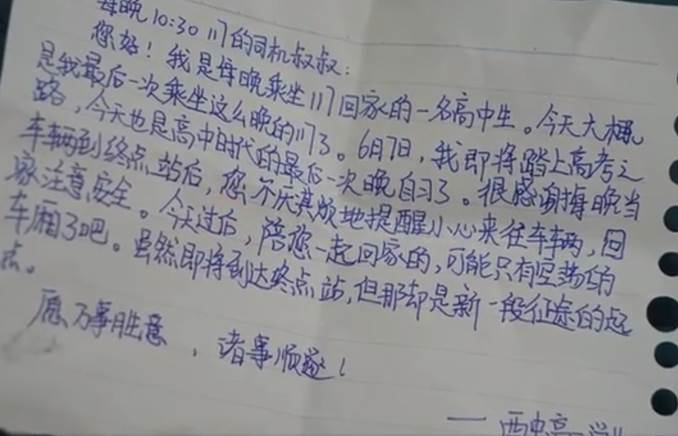 每晚10:30 117的司机叔叔：
您好！我是每晚乘坐117回家的一名高中生。今天大概
是我最后一次乘坐这么晚的117了。6月7日，我即将踏上高考之
路，今天也是高中时代的最后一次晚自习了。很感谢每晚当
车辆到终点站后，您不厌其烦地提醒小心来往车辆，回
家注意安全。今天过后，陪您一起回家的，可能只有空荡的
车厢了吧。虽然即将到达终点站，但那却是新一段征途的起
点。
愿万事胜意，诸事顺遂！
——西